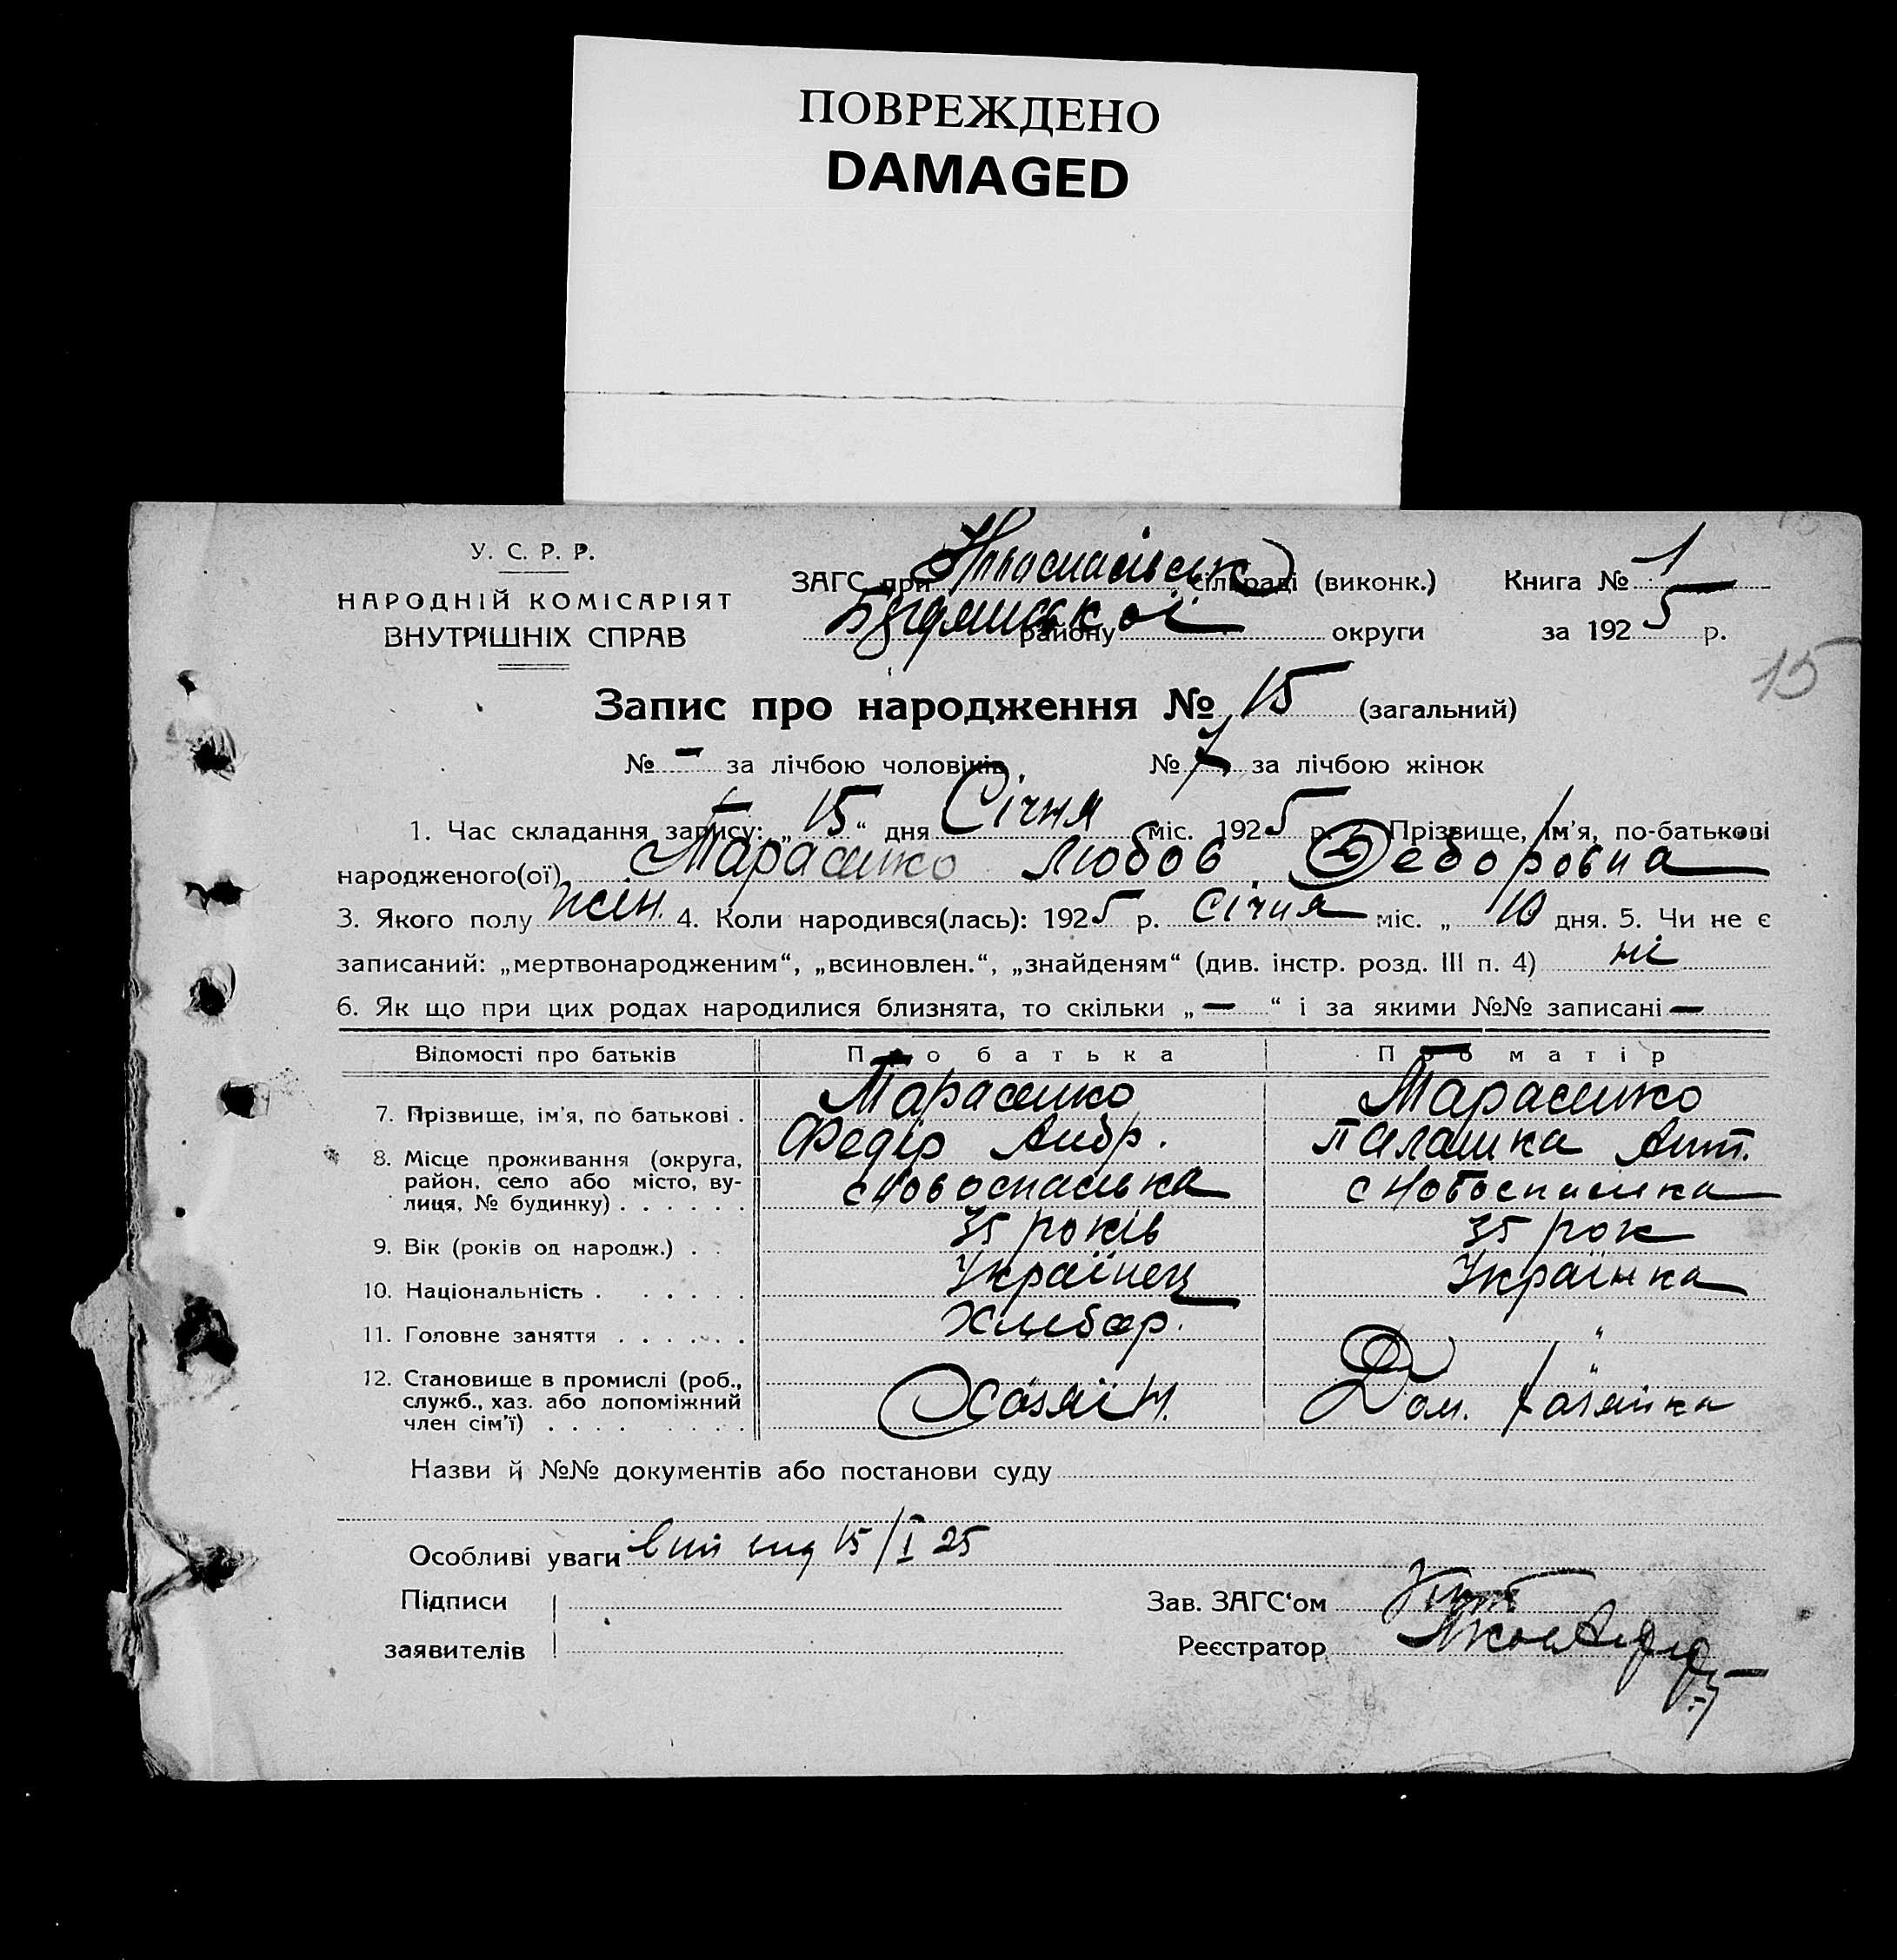 ПОВРЕЖДЕНО
DAMAGED
У. С. Р. Р.
НАРОДНІЙ КОМІСАРІЯТ
ВНУТРІШНІХ СПРАВ
ЗАГС при Новоспасівськ сільраді (виконк.) Книга № 1
району округи за 1925 р.
15
Запис про народження № 15 (загальний)
№ — за лічбою чоловіків № 7 за лічбою жінок
1. Час складання запису: „15“ дня Січня міс. 1925 р. 2. Прізвище, ім'я, по-батькові
народженого(ої) Тарасенко Любов Федоровна
3. Якого полу жін. 4. Коли народився(лась): 1925 р. Січня міс. „ 10 дня. 5. Чи не є
записаний: „мертвонародженим“, „всиновлен.“, „знайденям“ (див. інстр. розд. III п. 4) ні
6. Як що при цих родах народилися близнята, то скільки „ — “ і за якими №№ записані —
Відомості про батьків Про батька Про матір
7. Прізвище, ім'я, по батькові . Тарасенко Тарасенко
Федір Андр. Палашка Ант.
8. Місце проживання (округа, район, село або місто, вулиця, № будинку) . . . . . . с Новоспаська с Новоспаська
9. Вік (років од народж.) . . 35 років 35 рок
10. Національність . . . . . . Українец Українка
11. Головне заняття . . . . . . Хлибор. "
12. Становище в промислі (роб., служб., хаз. або допоміжний член сім'ї) . . . . . . . . Хозяїн. " Дом. хозяйка
Назви й №№ документів або постанови суду
Особливі уваги 15/I 25
Підписи
заявителів
Зав. ЗАГС'ом
Реєстратор